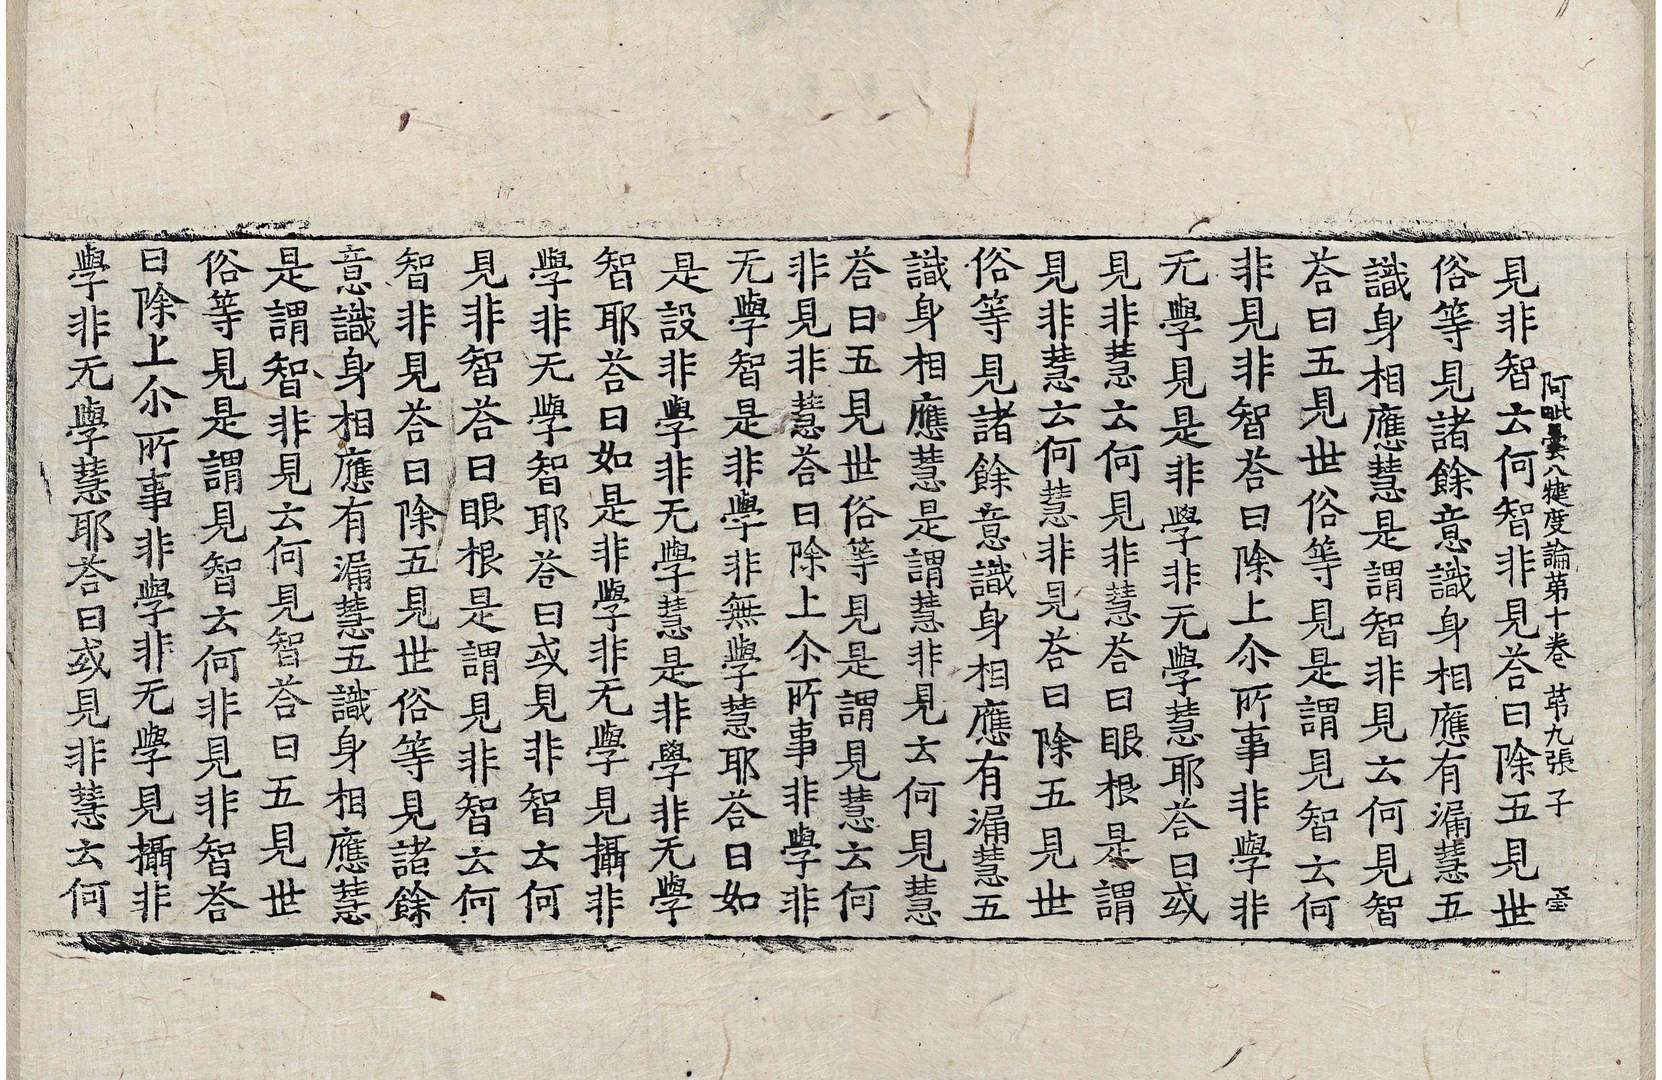 阿毗曇八揵度論第十卷 苐九張 子
見非智云何智非見荅曰除五見世
俗等見諸餘意識身相應有漏慧五
識身相應慧是謂智非見云何見智
荅曰五見世俗等見是謂見智云何
非見非智荅曰除上尒所事非學非
无學見是非學非无學慧耶荅曰或
見非慧云何見非慧荅曰眼根是謂
見非慧云何慧非見荅曰除五見世
俗等見諸餘意識身相應有漏慧五
識身相應慧是謂慧非見云何見慧
荅曰五見世俗等見是謂見慧云何
非見非慧荅曰除上尒所事非學非
无學智是非學非無學慧耶荅曰如
是設非學非无學慧是非學非无學
智耶荅曰如是非學非无學見攝非
學非无學智耶荅曰或見非智云何
見非智荅曰眼根是謂見非智云何
智非見荅曰除五見世俗等見諸餘
意識身相應有漏慧五識身相應慧
是謂智非見云何見智荅曰五見世
俗等見是謂見智云何非見非智荅
曰除上尒所事非學非无學見攝非
學非无學慧耶荅曰或見非慧云何